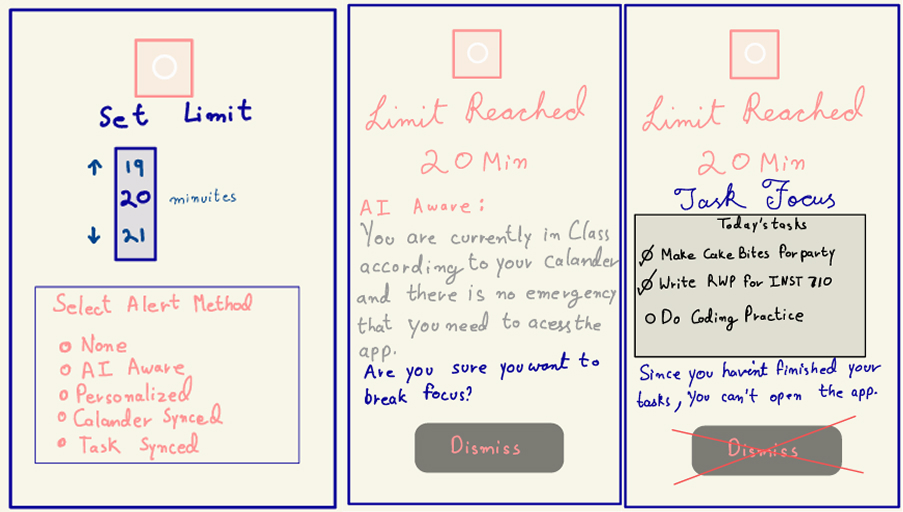 Set Limit
19
20 minuites
21
Select Alert Method
None
AI Aware
Personalized
Calander Synced
Task Synced
Limit Reached
20 Min
AI Aware:
You are currently in Class
according to your Calander
and there is no emergency
that you need to acess the
app.
Are you sure you want to
break focus?
Dismiss
Limit Reached
20 Min
Task Focus
Today's tasks
Make Cake Bites For party
Write RWP for INST 710
Do Coding Practice
Since you havent finished your
tasks, you can't open the app.
Dismiss